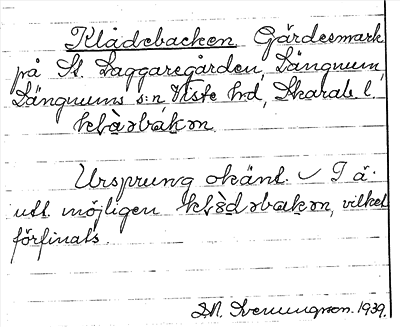 Klådebacken Gärdesmark
på St. Laggaregården, Längnum,
Längnums s:n, Viste hrd, Skarab. l.
Ursprung okänt. I ä.
utt. möjligen vilket
förfinats.
Svenungson. 1939.